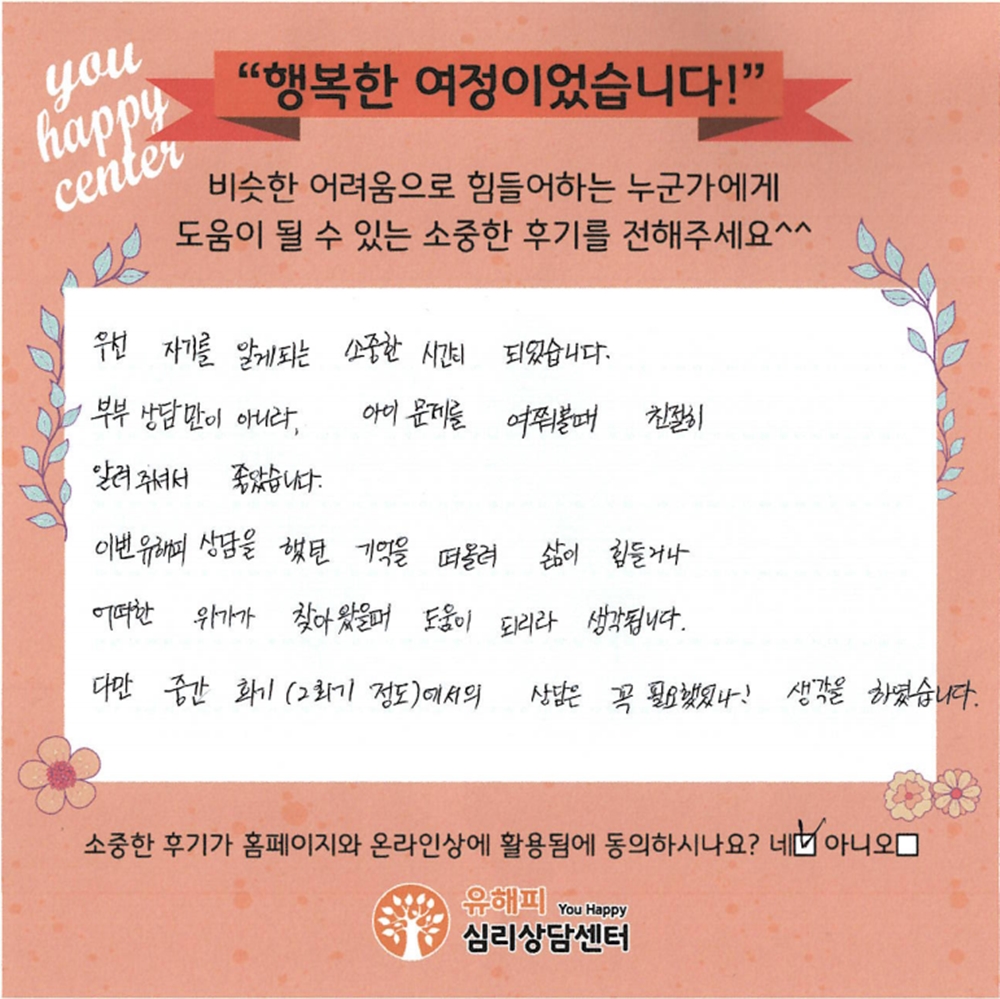 you
happy
center
“행복한 여정이었습니다!”
비슷한 어려움으로 힘들어하는 누군가에게
도움이 될 수 있는 소중한 후기를 전해주세요^^
우선 자기를 알게되는 소중한 시간이 되었습니다.
부부 상담만이 아니라, 아이 문제를 여쭤볼때 친절히
알려주셔서 좋았습니다.
이번 유해피 상담을 했던 기억을 떠올려 삶이 힘들거나
어떠한 위기가 찾아왔을때 도움이 되리라 생각됩니다.
다만 중간 회기 (2회기 정도)에서의 상담은 꼭 필요했었나? 생각을 하였습니다.
소중한 후기가 홈페이지와 온라인상에 활용됨에 동의하시나요? 네 아니오
유해피 You Happy
심리상담센터